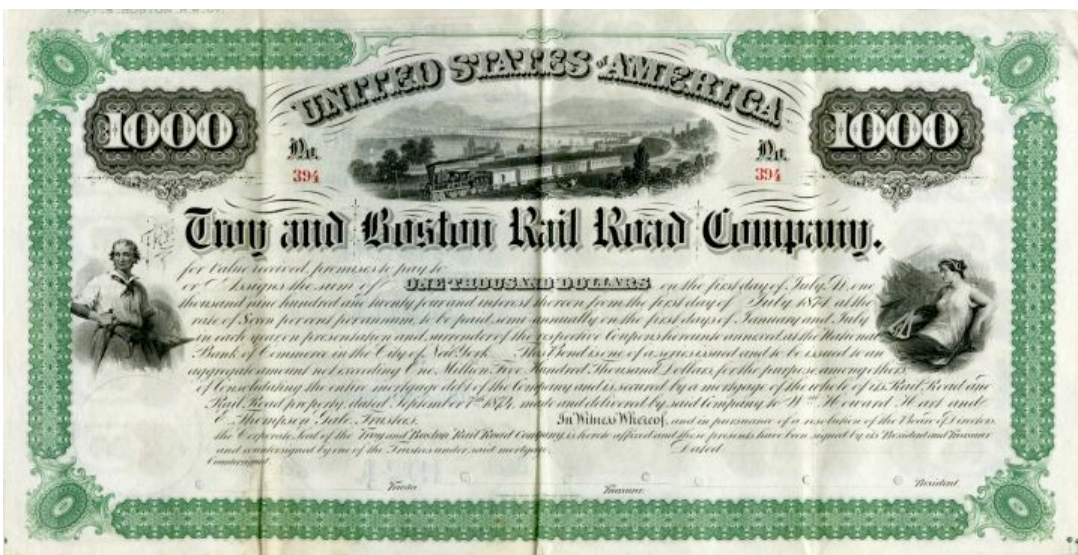 TROY & BOSTON R.R. CO.
UNITED STATES OF AMERICA
1000 1000
No. No.
394 394
Troy and Boston Rail Road Company.
for Value received, promises to pay to
or Assigns the sum of ONE THOUSAND DOLLARS on the first day of July A.D. one
thousand nine hundred and twenty four and interest thereon from the first day of July 1874 at the
rate of Seven per cent per annum, to be paid semi-annually on the first days of January and July
in each year on presentation and surrender of the respective Coupons hereunto annexed at the National
Bank of Commerce in the City of New York. This Bond is one of a series issued and to be issued to an
aggregate amount not exceeding One Million Five Hundred Thousand Dollars, for the purpose among others,
of Consolidating the entire mortgage debt of the Company and is secured by a mortgage of the whole of its Rail Road and
Rail Road property, dated September 7th 1874, made and delivered by said Company to Wm. Howard Hart and
E. Thompson Gale, Trustees. In Witness Whereof, and in pursuance of a resolution of the Board of Directors
the Corporate Seal of the Troy and Boston Rail Road Company is hereto affixed and these presents have been signed by its President and Treasurer
and countersigned by one of the Trustees under said mortgage. Dated
Countersigned
Trustee. Treasurer. President